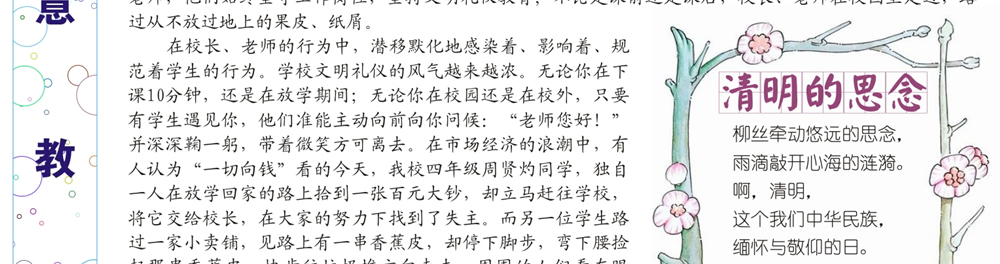 意
教
过从不放过地上的果皮、纸屑。
在校长、老师的行为中，潜移默化地感染着、影响着、规
范着学生的行为。学校文明礼仪的风气越来越浓。无论你在下
课10分钟，还是在放学期间；无论你在校园还是在校外，只要
有学生遇见你，他们准能主动向前向你问候：“老师您好！”
并深深鞠一躬，带着微笑方可离去。在市场经济的浪潮中，有
人认为“一切向钱”看的今天，我校四年级周贤灼同学，独自
一人在放学回家的路上拾到一张百元大钞，却立马赶往学校，
将它交给校长，在大家的努力下找到了失主。而另一位学生路
过一家小卖铺，见路上有一串香蕉皮，却停下脚步，弯下腰捡
清明的思念
柳丝牵动悠远的思念，
雨滴敲开心海的涟漪。
啊，清明，
这个我们中华民族，
缅怀与敬仰的日。